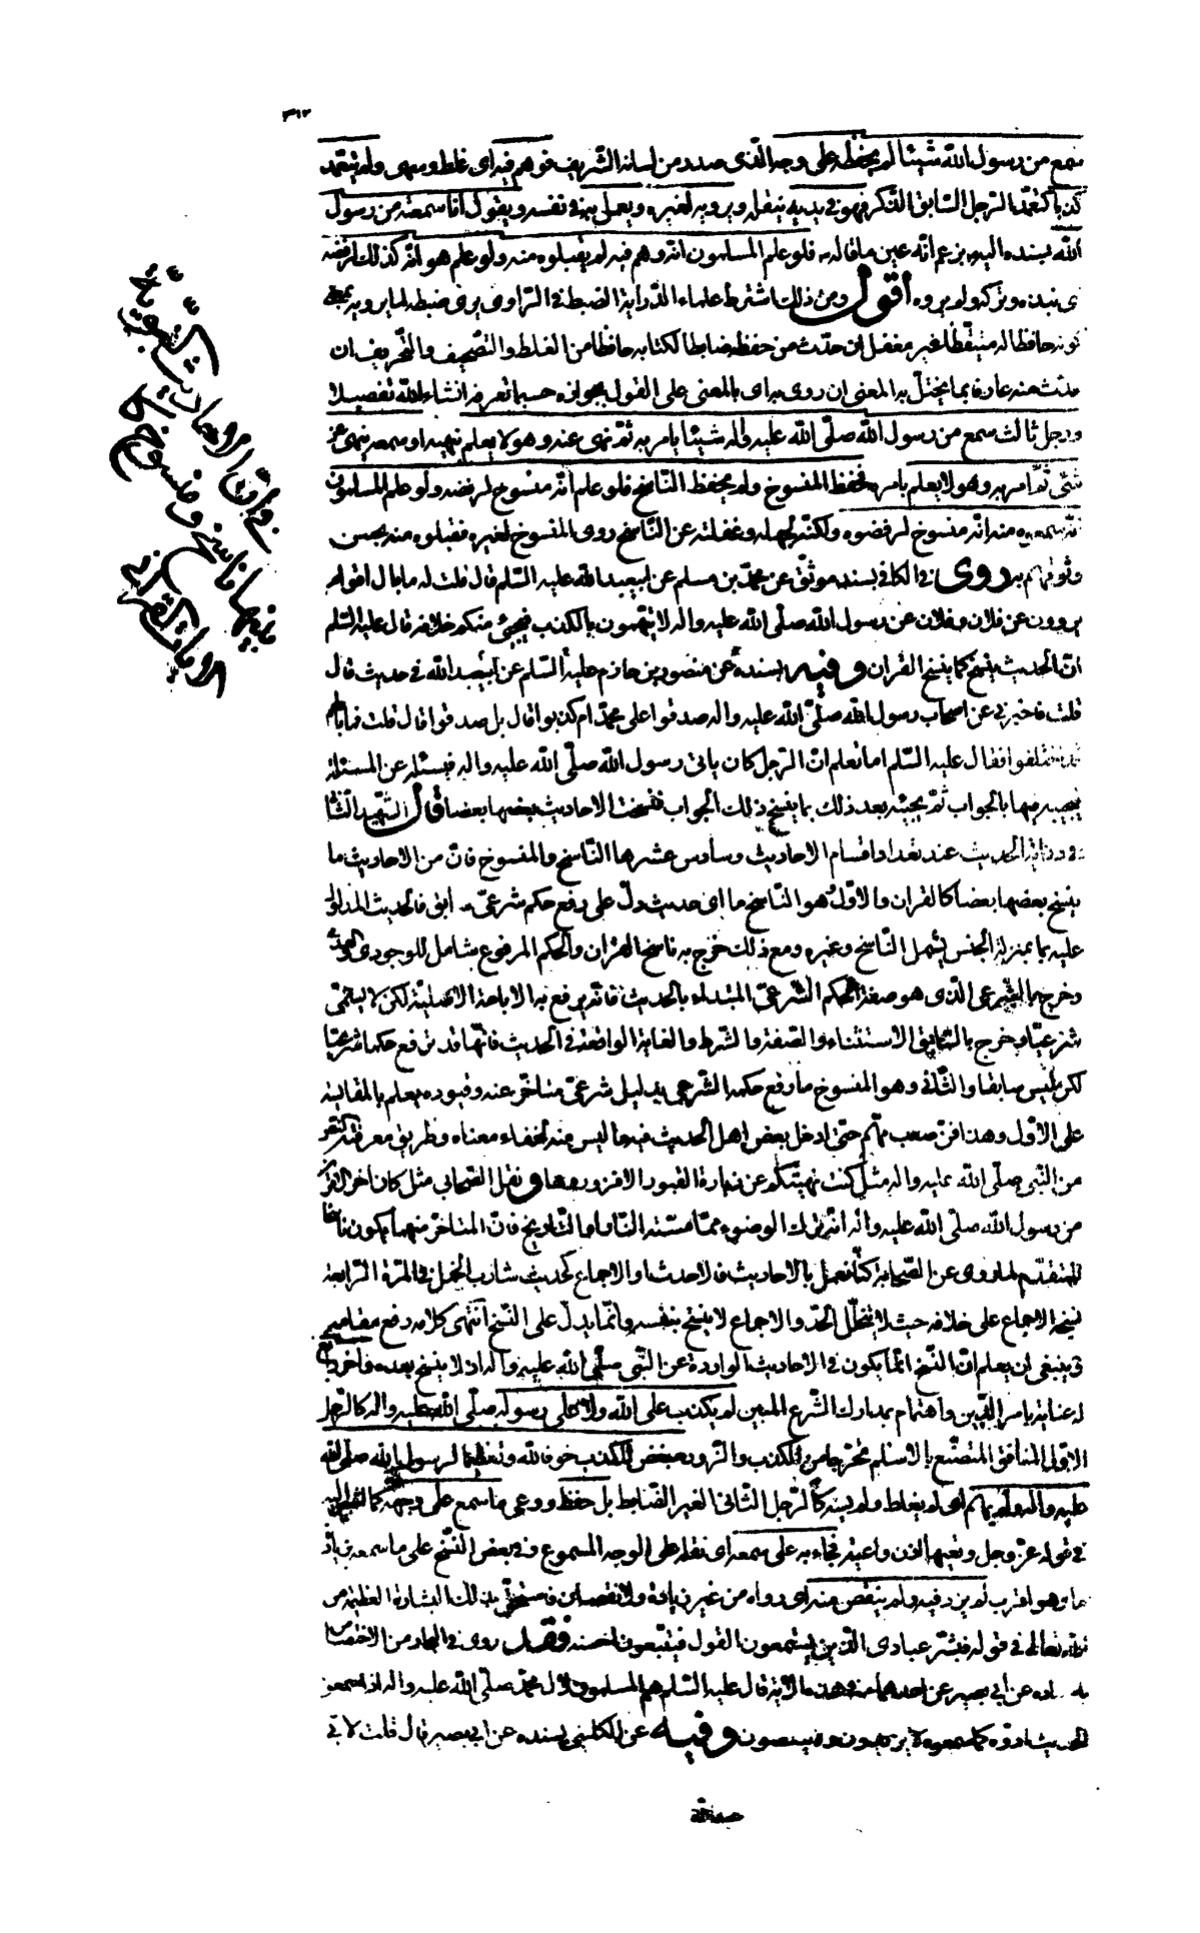 ٣١٢
سمع من رسول الله شيئا لم يحفظه على وجه الّذى صدر من لسانه الشّريف فوهم فيه اى غلط وسهى ولم يتعمّد
كذبا كتعمّد الرّجل السّابق الذّكر فهو فى يديه ينقله ويرويه لغيره ويعمل به فى نفسه ويقول انا سمعته من رسول
الله يسنده اليه بزعم انّه عين ما قاله فلو علم المسلمون انّه وهم فيه لم يقبلوه منه ولو علم هو انّه كذلك لرفضه
اى نبذه وتركه ولم يروه اقول ومن ذلك اشترط علماء الدّراية الضبط فى الرّاوى يرى ضبطه لما يرويه بمعنى
كونه حافظا له متيقّظا غير مغفل ان حدّث من حفظه ضابطا لكتابه حافظا من الغلط والتّصحيف والتّحريف ان
حدّث منه عارفا بما يختلّ به المعنى ان روى به اى بالمعنى على القول بجوازه حسبما تعرفه انشاء الله تفصيلا
ورجل ثالث سمع من رسول الله صلّى الله عليه واله شيئا يامر به ثمّ نهى عنه وهو لا يعلم نهيه او سمعه ينهى عن
شئ ثمّ امر به وهو لا يعلم بامره فحفظ المنسوخ ولم يحفظ النّاسخ فلو علم انّه منسوخ لرفضه ولو علم المسلمون
اذ سمعوه منه انّه منسوخ لرفضوه ولكنّه لجهله وغفلته عن النّاسخ روى المنسوخ لغيره فقبلوه منه بحسن
وثوقهم به روى فى الكافى بسند موثّق عن محمّد بن مسلم عن ابيعبدالله عليه السّلم قال قلت له ما بال اقوام
يروون عن فلان وفلان عن رسول الله صلّى الله عليه واله لا يتّهمون بالكذب فيجيئ منكم خلافه قال عليه السّلم
انّ الحديث ينسخ كما ينسخ القران وفيه بسنده عن منصور بن حازم عن ابيعبدالله فى حديث قال
قلت فاخبرنى عن اصحاب رسول الله صلّى الله عليه واله صدقوا على محمّد ام كذبوا قال بل صدقوا قال قلت فما بالهم
اختلفوا فقال عليه السّلم اما تعلم انّ الرّجل كان ياتى رسول الله صلّى الله عليه واله فيسئله عن المسئلة
فيجيبه فيها بالجواب ثمّ يجيبه بعد ذلك بما ينسخ ذلك الجواب فنسخت الاحاديث بعضها بعضا قال الشّهيد الثّانى
فى دراية الحديث عند تعداد اقسام الاحاديث وسادس عشرها النّاسخ والمنسوخ فانّ من الاحاديث ما
ينسخ بعضها بعضا كالقران والاوّل هو النّاسخ ما اى حديث دلّ على رفع حكم شرعىّ سابق فالحديث المدلول
عليه بما بمنزلة الجنس يشمل النّاسخ وغيره ومع ذلك خرج به ناسخ القران والحكم المرفوع شامل للوجودى والعدمى
وخرج بالشّرعى الّذى هو صفة الحكم الشّرعىّ المبتداء بالحديث فانّه يرفع به الاباحة الاصليّة لكن لا يسمّى
شرعيّا وخرج بالسّابق الاستثناء والصّفة والشّرط والغاية الواقعة فى الحديث فانّها قد ترفع حكما شرعيّا
لكن ليس سابقا والثّانى وهو المنسوخ ما رفع حكمه الشّرعى بدليل شرعىّ متاخّر عنه وقيوده يعلم بالمقايسة
على الاوّل وهذا فنّ صعب مهمّ حتى ادخل بعض اهل الحديث فيه ما ليس منه لخفاء معناه وطريق معرفته النصّ
من النّبى صلّى الله عليه واله مثل كنت نهيتكم عن زيارة القبور الا فزوروها ونقل الصّحابى مثل كان اخر الامرين
من رسول الله صلّى الله عليه واله انّه ترك الوضوء ممّا مسّته النّار او التّاريخ فانّ المتاخّر منهما يكون ناسخا
للمتقدّم لما روى عن الصّحابة كنّا نعمل بالاحاديث فالاحدث او الاجماع كحديث شارب الخمر فى المرّة الرّابعة
نسخه الاجماع على خلافه حيث لا يتخلّل الحدّ والاجماع لا ينسخ بنفسه وانّما يدلّ على النّسخ انتهى كلامه رفع مقامه
وينبغى ان يعلم انّ النّسخ انّما يكون فى الاحاديث الواردة عن النّبى صلّى الله عليه واله اذ لا ينسخ بعده واخر رابع
له عناية بامر الدّين واهتمام بمدارك الشّرع المبين لم يكذب على الله ولا على رسوله صلّى الله عليه واله كالرّجل
الاوّل المنافق المتصنّع بالاسلام متحرّجا من الكذب والزّور مبغض للكذب خوفا لله وتعظيما لرسول الله صلّى الله
عليه واله ولم يهم اى لم يغلط ولم ينسه كالرّجل الثّانى الغير الضّابط بل حفظ ووعى ما سمع على وجهه كما اشير اليه
فى قوله عزّ وجل وتعيها اذن واعية فجاء به على سمعه اى نقله على الوجه المسموع وفى بعض النّسخ على ما سمعه
وهو اقرب لم يزد فيه ولم ينقص منه اى رواه من غير زيادة ولا نقصان فاستحقّ بذلك البشارة العظيمة من
الله تعالى فى قوله فبشّر عبادى الّذين يستمعون القول فيتّبعون احسنه فقد روى فى البحار من الاختصاص
عن ابى بصير عن احدهما فى هذه الاية قال عليه السّلم هم المسلمون لال محمّد صلّى الله عليه واله اذا سمعوا
الحديث ادّوه كما سمعوه لا يزيدون ولا ينقصون وفيه عن الكلينى بسنده عن ابى بصير قال قلت لابى
فى انّ الاحاديث النّبويّة
فيها ناسخ ومنسوخ كا
الايات القرانيّة